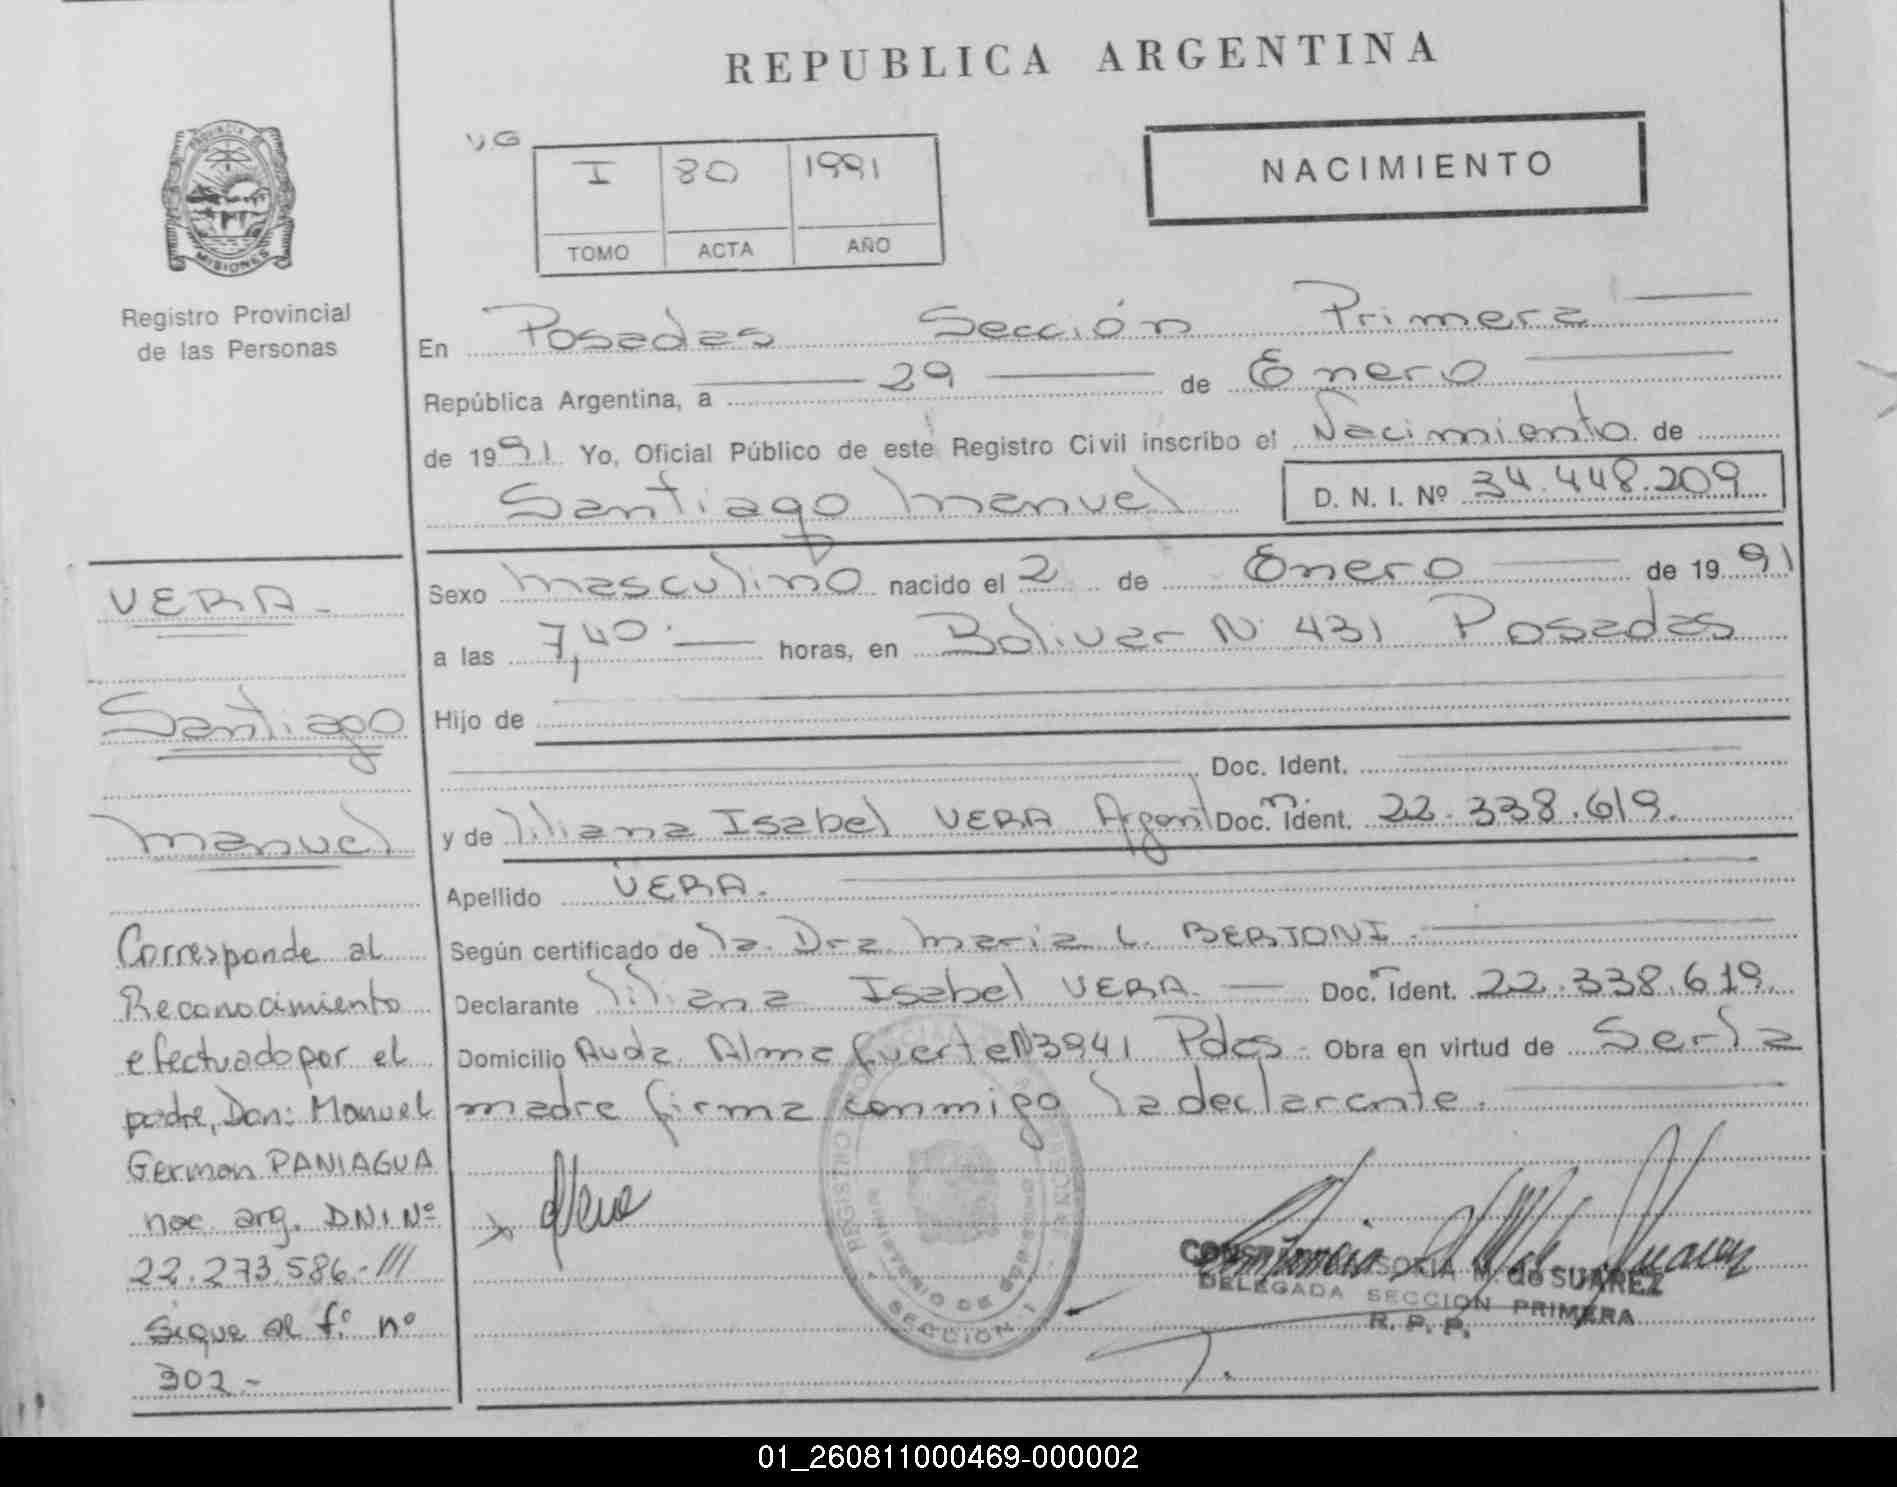 REPUBLICA ARGENTINA
PROVINCIA
MISIONES
Registro Provincial
de las Personas
VG
I 80 1991
TOMO ACTA AÑO
NACIMIENTO
En Posadas Sección Primera
República Argentina, a 29 de Enero
de 1991. Yo, Oficial Público de este Registro Civil inscribo el Nacimiento de
Santiago Manuel D. N. I. Nº 34.448.209
Sexo Masculino nacido el 2 de Enero de 1991
a las 7,40 horas, en Bolivar Nº 431 Posadas
Hijo de
Doc. Ident.
y de Liliana Isabel VERA Argent Doc. Ident. 22.338.619.
Apellido VERA.
Según certificado de la Dra Maria L. BERTONI.
Declarante Liliana Isabel VERA. Doc. Ident. 22.338.619.
Domicilio Avda. Almafuerte Nº 3941 Pdas. Obra en virtud de Ser la
madre firma conmigo la declarante.
VERA.
Santiago
Manuel
Corresponde al
Reconocimiento
efectuado por el
padre, Don: Manuel
German PANIAGUA
nac. arg. DNI Nº
22.273.586.-///
Sigue al fº nº
302.-
x LVera
SECCION 1
SOFIA M. de SUAREZ
DELEGADA SECCION PRIMERA
R. P. P.
01_260811000469-000002